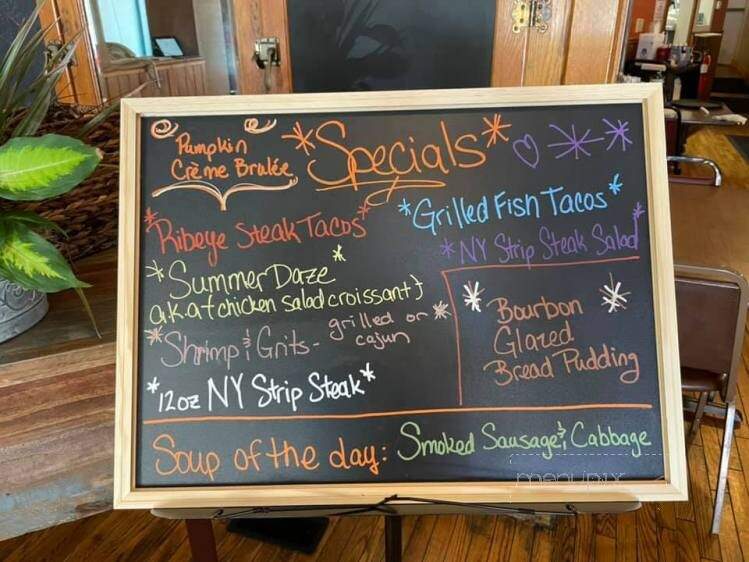 Pumpkin
Crème Brulée
*Specials*
*Ribeye Steak Tacos*
*Grilled Fish Tacos*
*NY Strip Steak Salad*
*Summer Daze*
a.k.a {chicken salad croissant}
*Shrimp & Grits - grilled or cajun*
*12oz NY Strip Steak*
*Bourbon*
Glazed
Bread Pudding
Soup of the day: Smoked Sausage & Cabbage
menupix